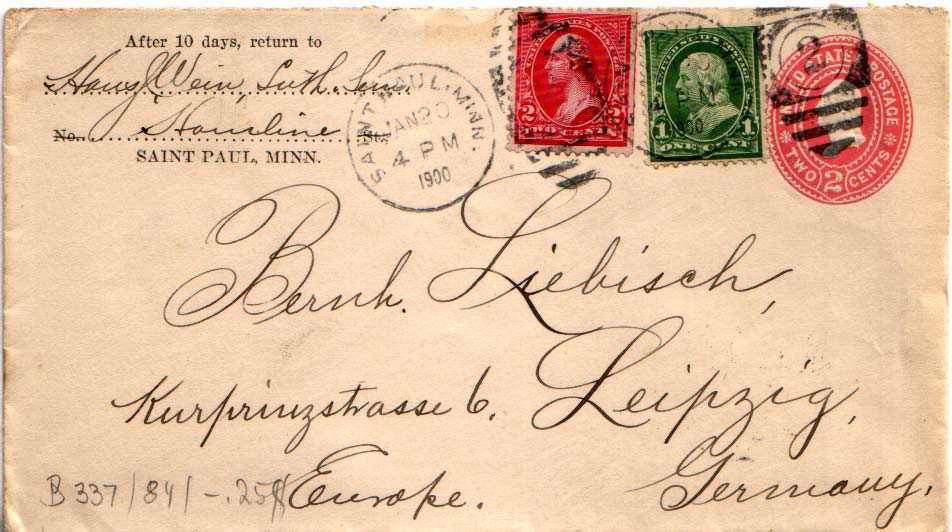 After 10 days, return to
Hans J. Wein, Luth. Sem.
No. Hamline St.,
SAINT PAUL, MINN.
SAINT PAUL, MINN.
JAN 20
4 PM
1900
UNITED STATES POSTAGE
2 TWO CENTS 2
UNITED STATES POSTAGE
1 ONE CENT 1
1900
UNITED STATES POSTAGE
TWO 2 CENTS
Bernh. Liebisch,
Kurprinzstrasse 6. Leipzig,
Europe. Germany.
B 337/84/-.25